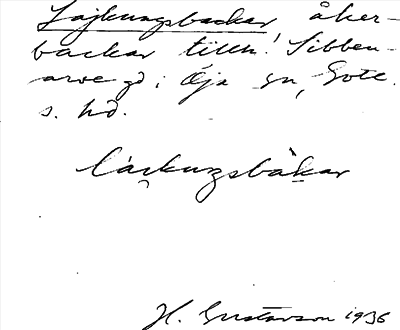 Lajkungsbackar åker-
backar tillh. Sibben-
arve gd i Öja sn, Gotl.
s. hd.
lái̯kuŋsbàkar
H. Gustavson 1936